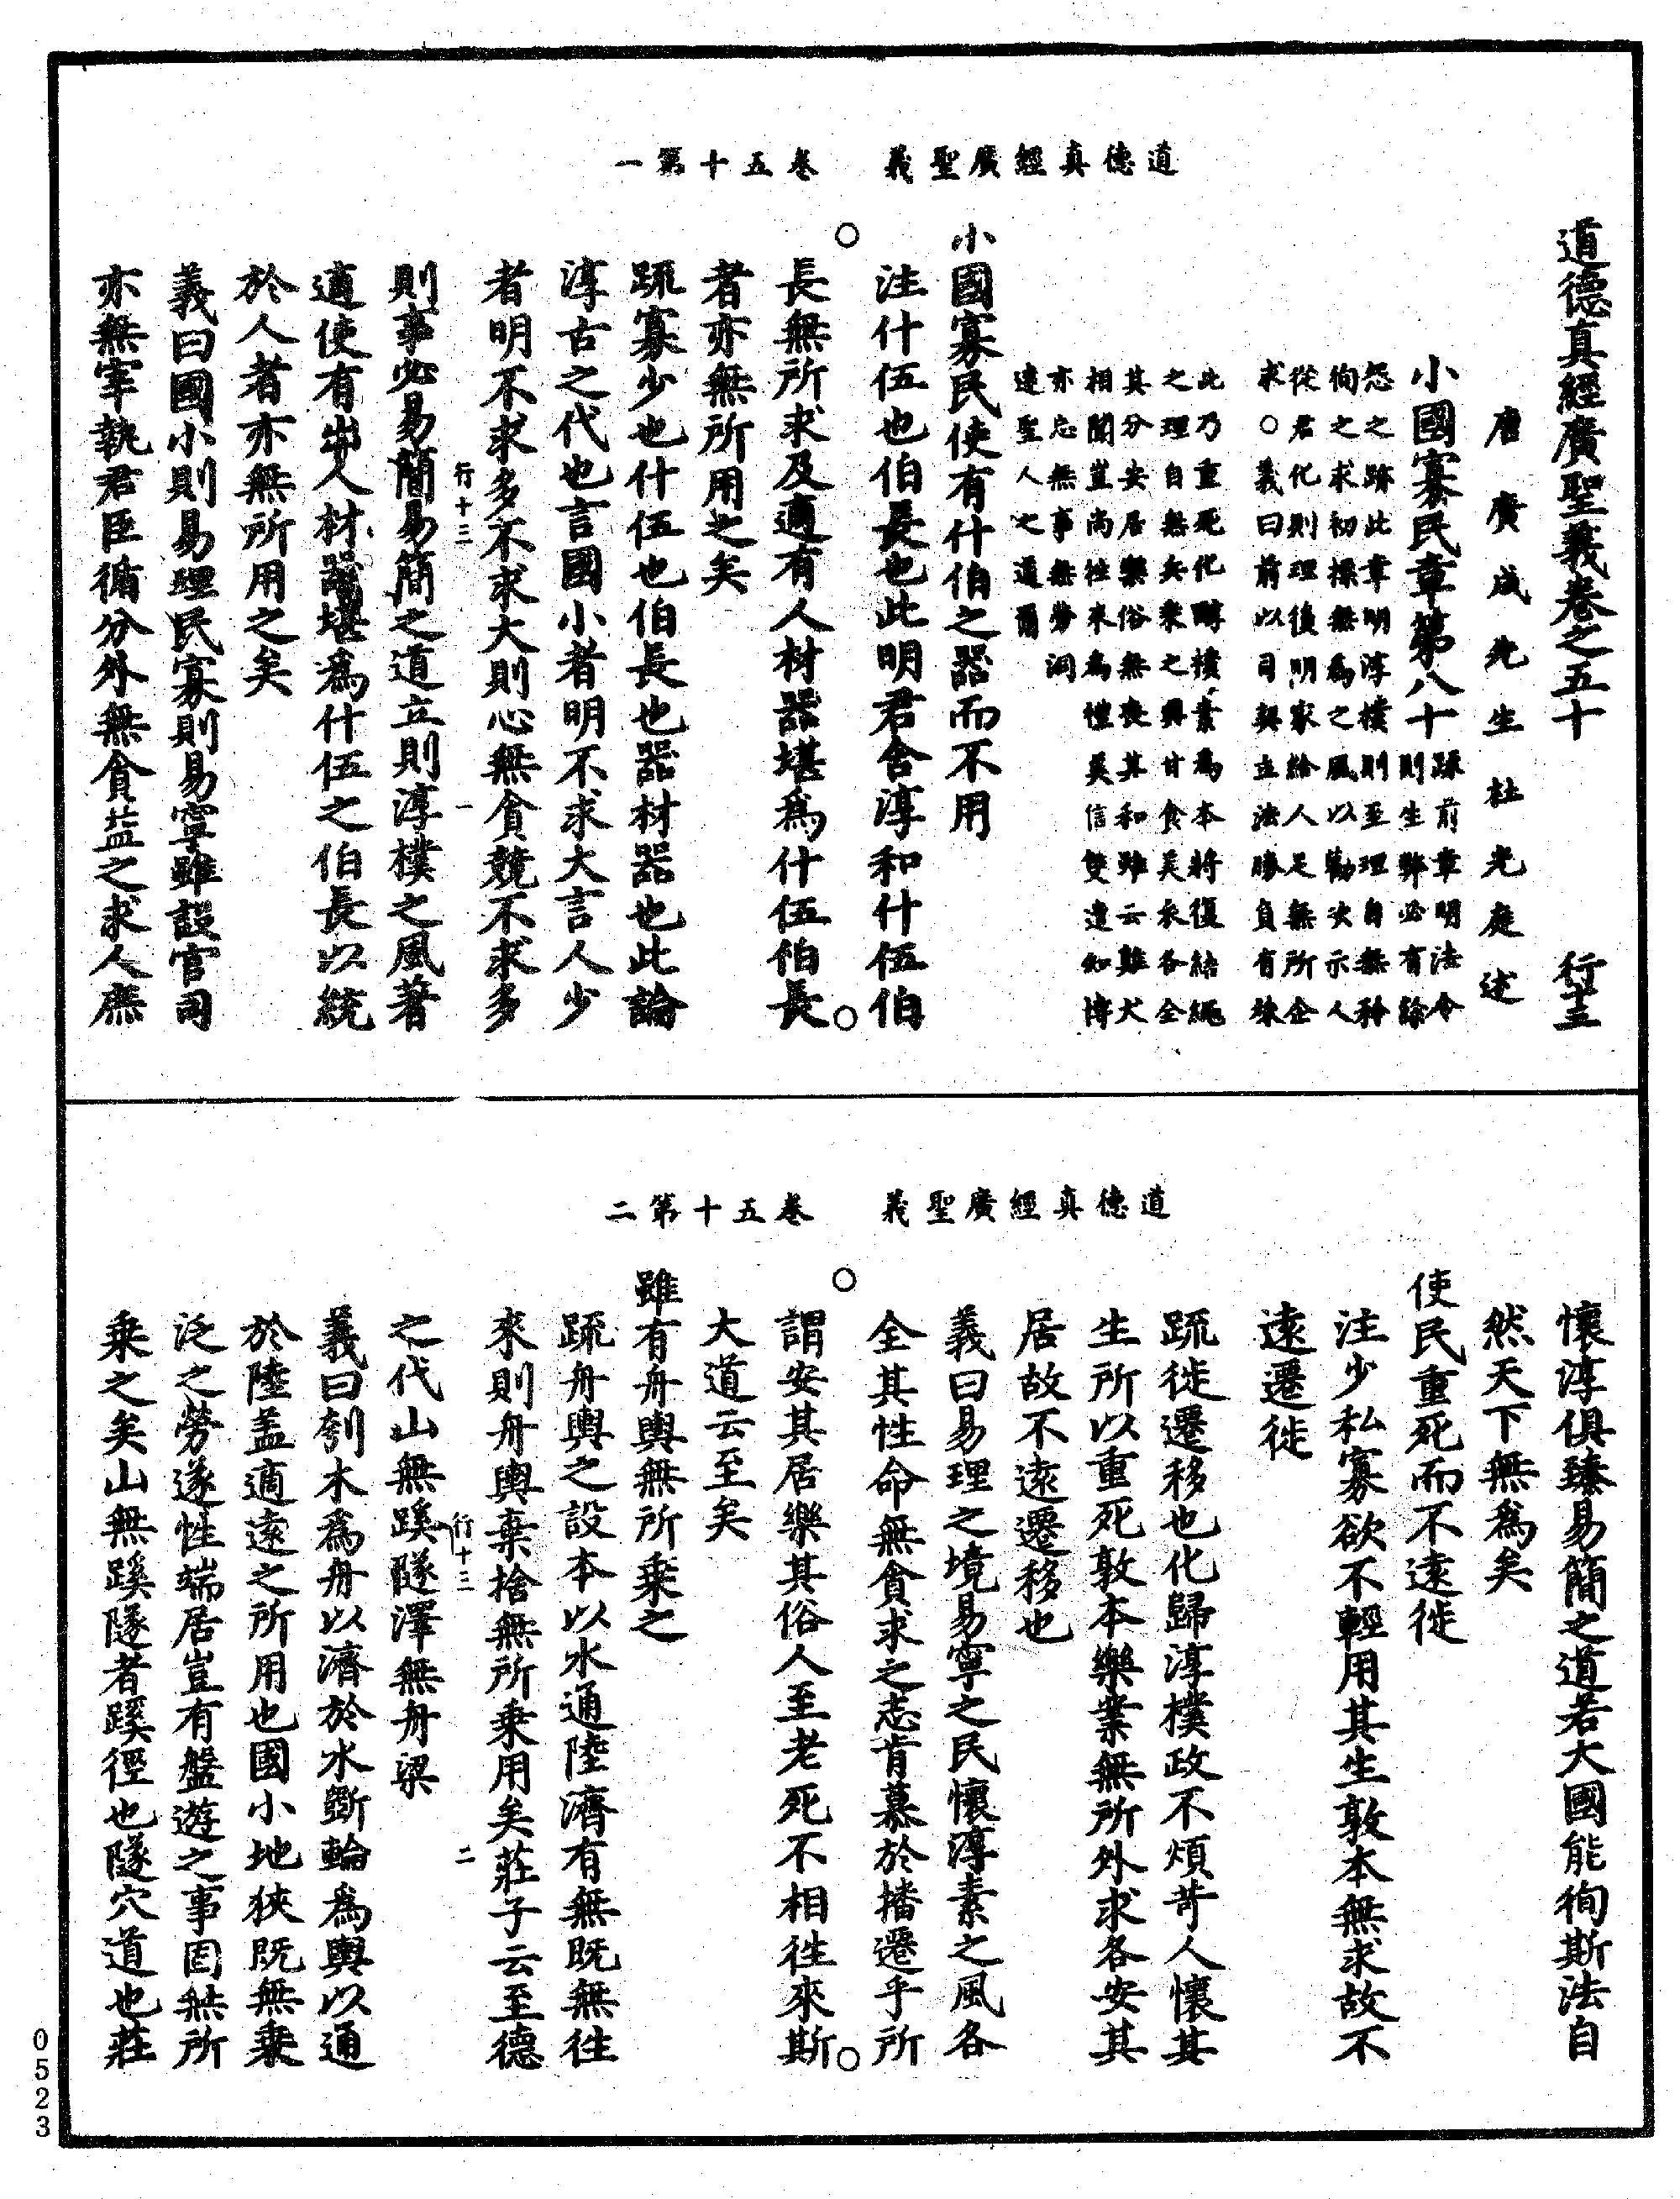 道德真經廣聖義　卷五十第一
道德真經廣聖義卷之五十　行十三
唐廣成先生杜光庭述
小國寡民章第八十
疏前章明法令
則生弊必有餘
怨之跡此章明淳樸則至理自無矜
徇之求初標無為之風以勸次示人
從君化則理後明家給人足無所企
求○義曰前以司契立法勝負有殊
此乃重死化醇樸素為本將復結繩
之理自無兵衆之興甘食美衣各全
其分安居樂俗無喪其和雖云雞犬
相聞豈尚往來為禮莫信雙遣知博
亦忘無事無勞洞
達聖人之道爾
小國寡民使有什伯之器而不用
注什伍也伯長也此明君含淳和什伍伯
長無所求及適有人材器堪為什伍伯長
者亦無所用之矣
疏寡少也什伍也伯長也器材器也此論
淳古之代也言國小者明不求大言人少
者明不求多不求大則心無貪競不求多
行十三　一
則事必易簡易簡之道立則淳樸之風著
適使有出人材器堪為什伍之伯長以統
於人者亦無所用之矣
義曰國小則易理民寡則易寧雖設官司
亦無宰執君臣循分外無貪益之求人庶
道德真經廣聖義　卷五十第二
懷淳俱臻易簡之道若大國能徇斯法自
然天下無為矣
使民重死而不遠徙
注少私寡欲不輕用其生敦本無求故不
遠遷徙
疏徙遷移也化歸淳樸政不煩苛人懷其
生所以重死敦本樂業無所外求各安其
居故不遠遷移也
義曰易理之境易寧之民懷淳素之風各
全其性命無貪求之志肯慕於播遷乎所
謂安其居樂其俗人至老死不相往來斯
大道云至矣
雖有舟輿無所乘之
疏舟輿之設本以水通陸濟有無既無往
來則舟輿棄捨無所乘用矣莊子云至德
行十三　二
之代山無蹊隧澤無舟梁
義曰刳木為舟以濟於水斲輪為輿以通
於陸盖適遠之所用也國小地狹既無乗
泛之勞遂性端居豈有盤遊之事固無所
乘之矣山無蹊隧者蹊徑也隧穴道也莊
0523